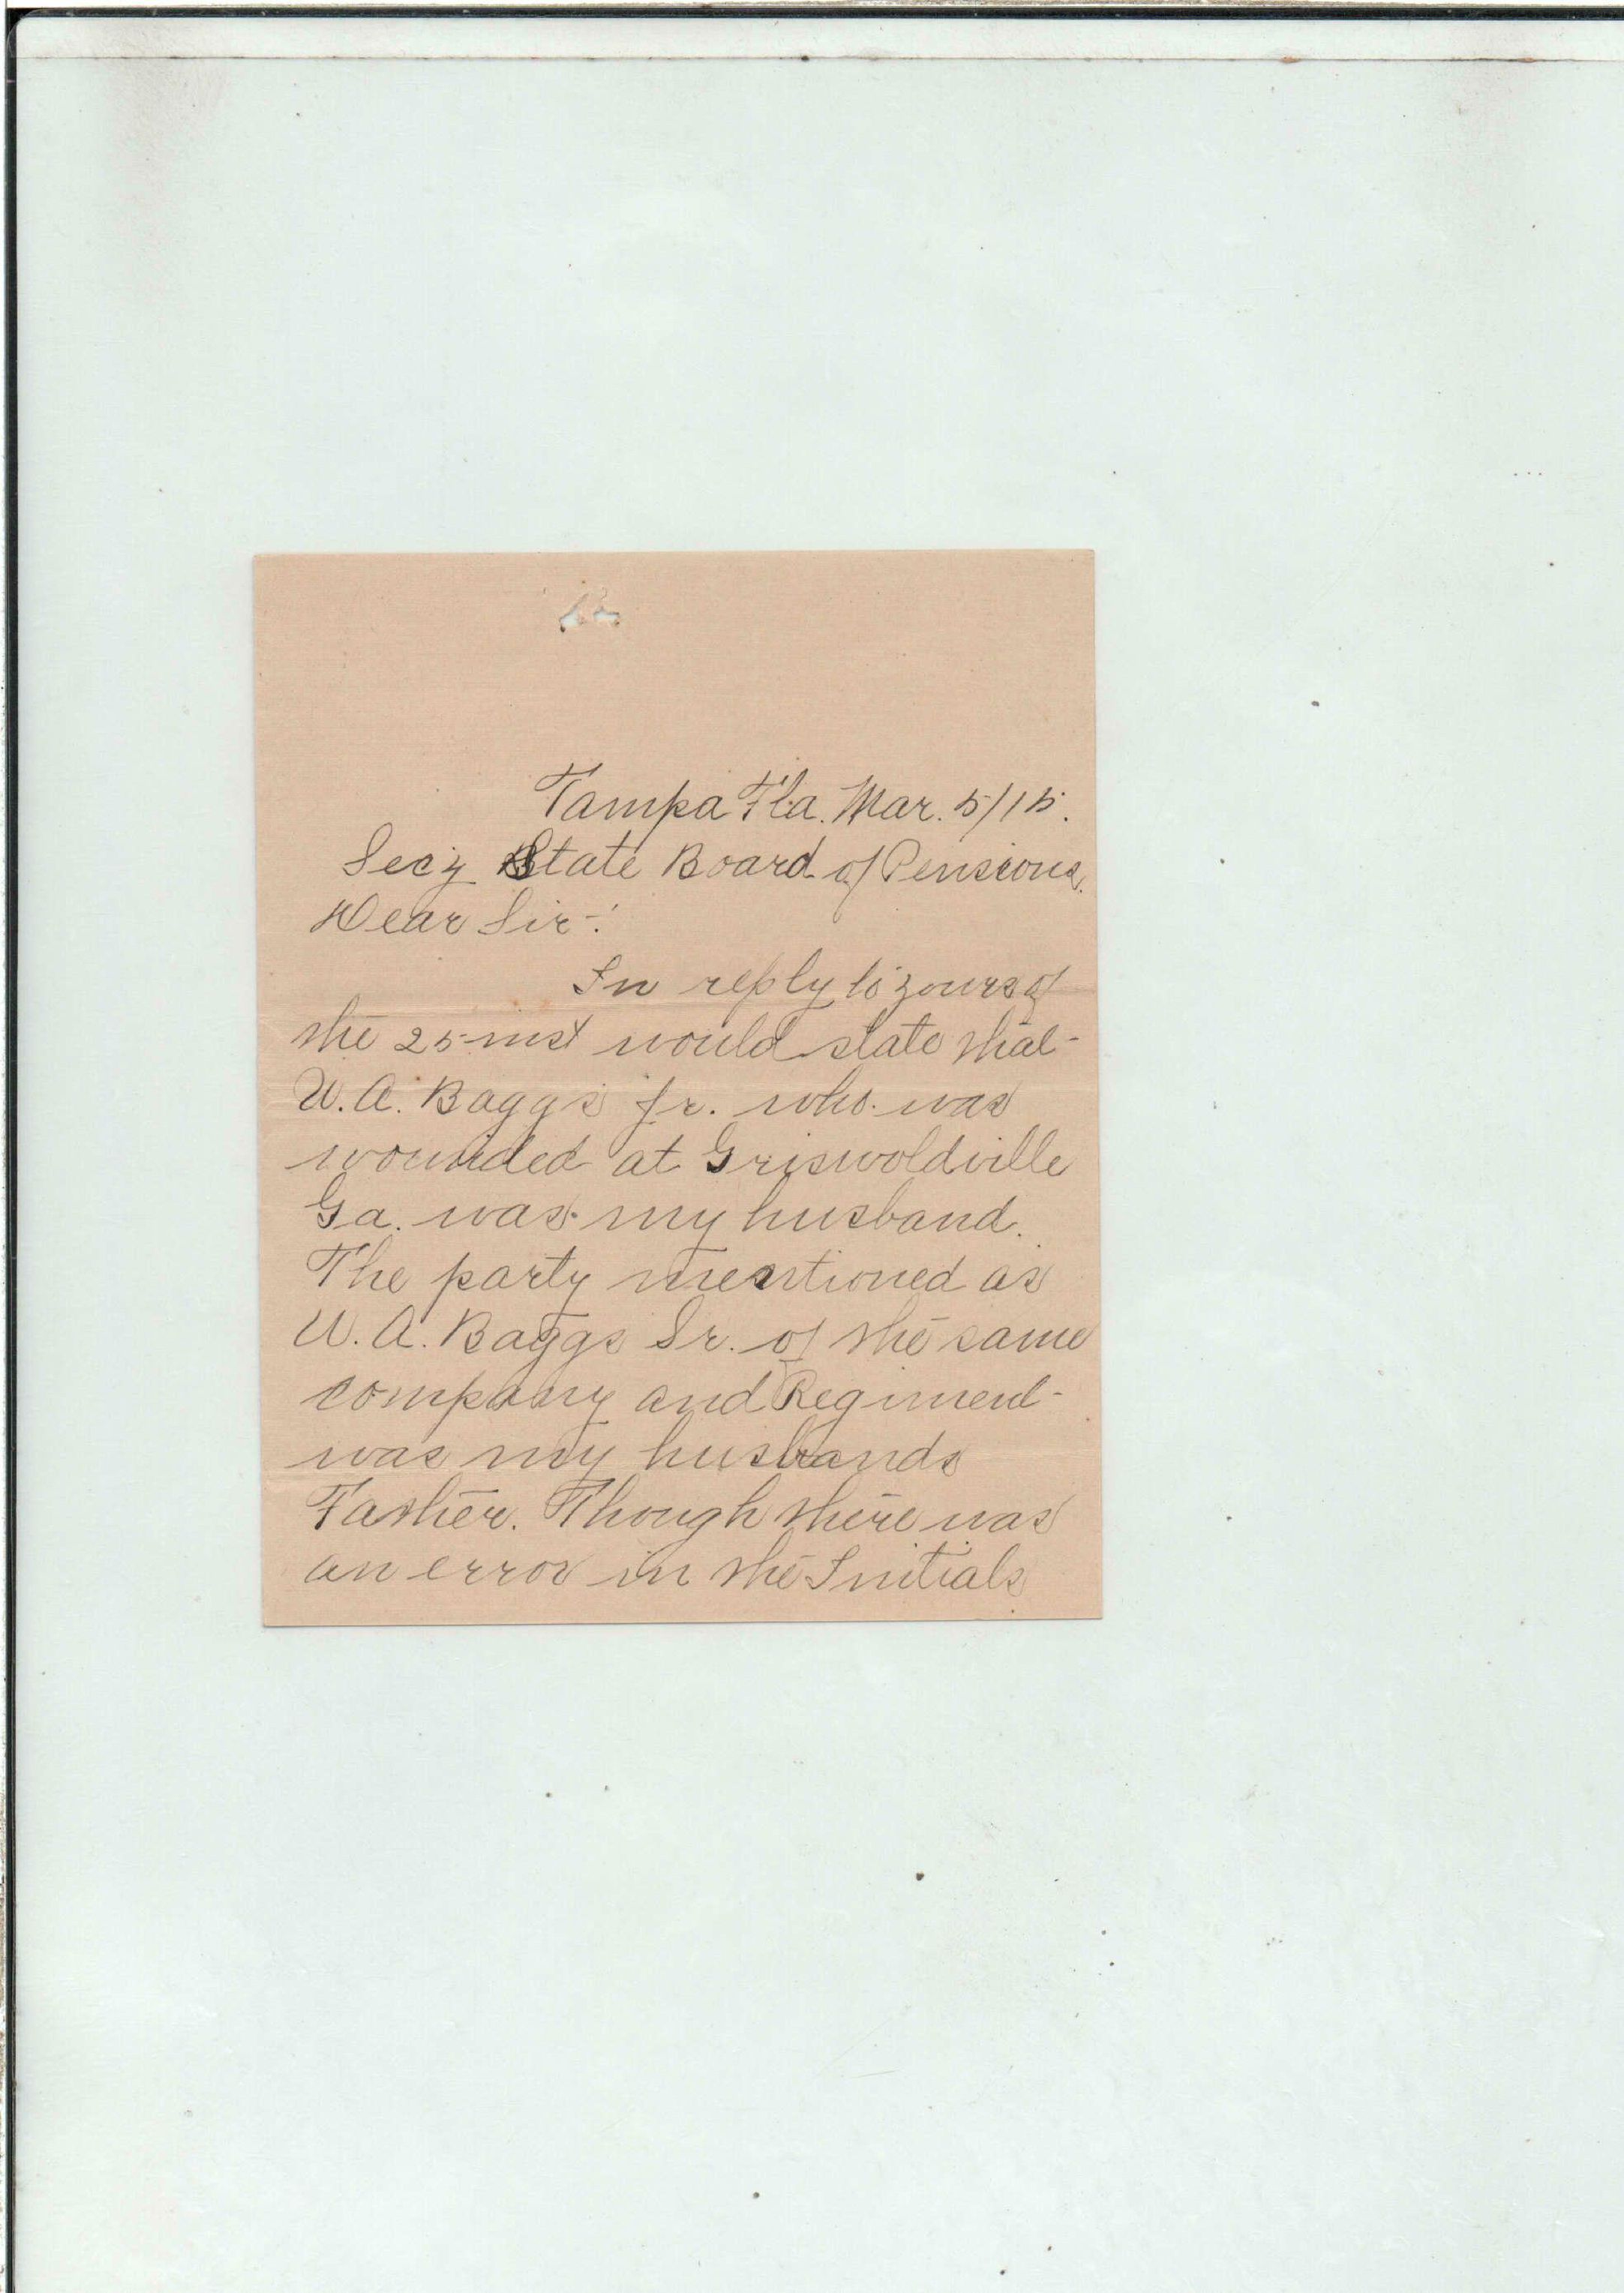 Tampa Fla. Mar. 5/15.
Secy State Board of Pensions.
Dear Sir-:
In reply to yours of
the 25 inst would state that
W. A. Baggs Jr. who was
wounded at Griswoldville
Ga. was my husband.
The party mentioned as
W. A. Baggs Sr. of the same
company and Regiment
was my husbands
Father. Though there was
an error in the Initials